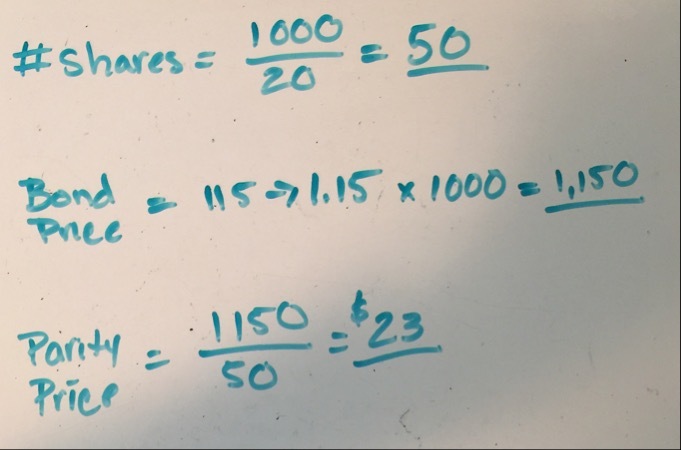 # shares = 1000/20 = 50
Bond Price = 115 → 1.15 x 1000 = 1,150
Parity Price = 1150/50 = $23